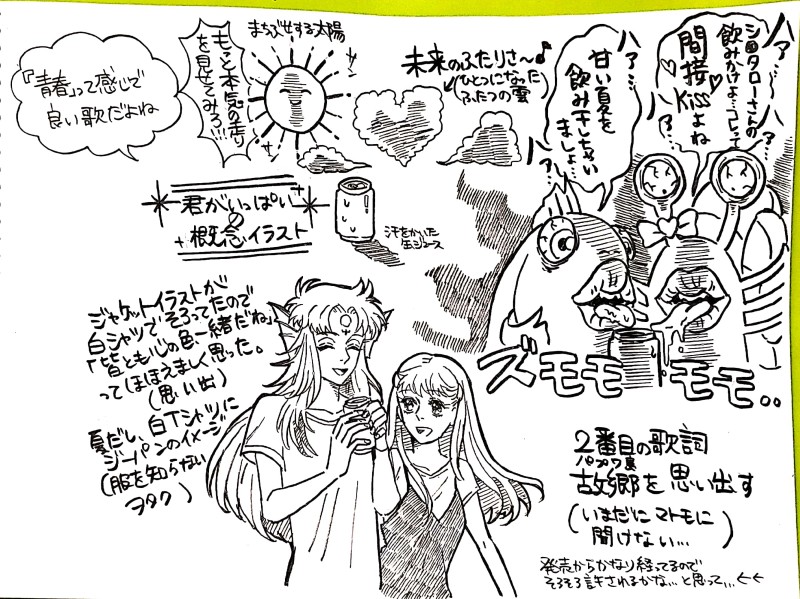 『青春』って感じで
良い歌だよね
もっと本気の走り
を見せてみろ!!!
まちぶせする太陽
サン
サン
未来のふたりさ〜♪
(ひとつになった
ふたつの雲)
甘い夏を
飲み干しちゃい
ましょ…
ハァ…
ハァ…
シンタローさんの
飲みかけよ…
間接
Kissよね
ハァ…
ハァ…
ハァ…
君がいっぱい
の
概念イラスト
汗をかいた
缶ジュース
ジャケットイラストが
白シャツでそろってたので
「皆とも心の色一緒だね」
ってほほえましく思った。
(思い出)
夏だし、白Tシャツに
ジーパンのイメージ
(服を知らない
ヲタク)
ズモモモモ..
2番目の歌詞
パプワ島
故郷を思い出す
(いまだにマトモに
聞けない…)
発売からかなり経ってるので
そろそろ許されるかな…と思って…←←